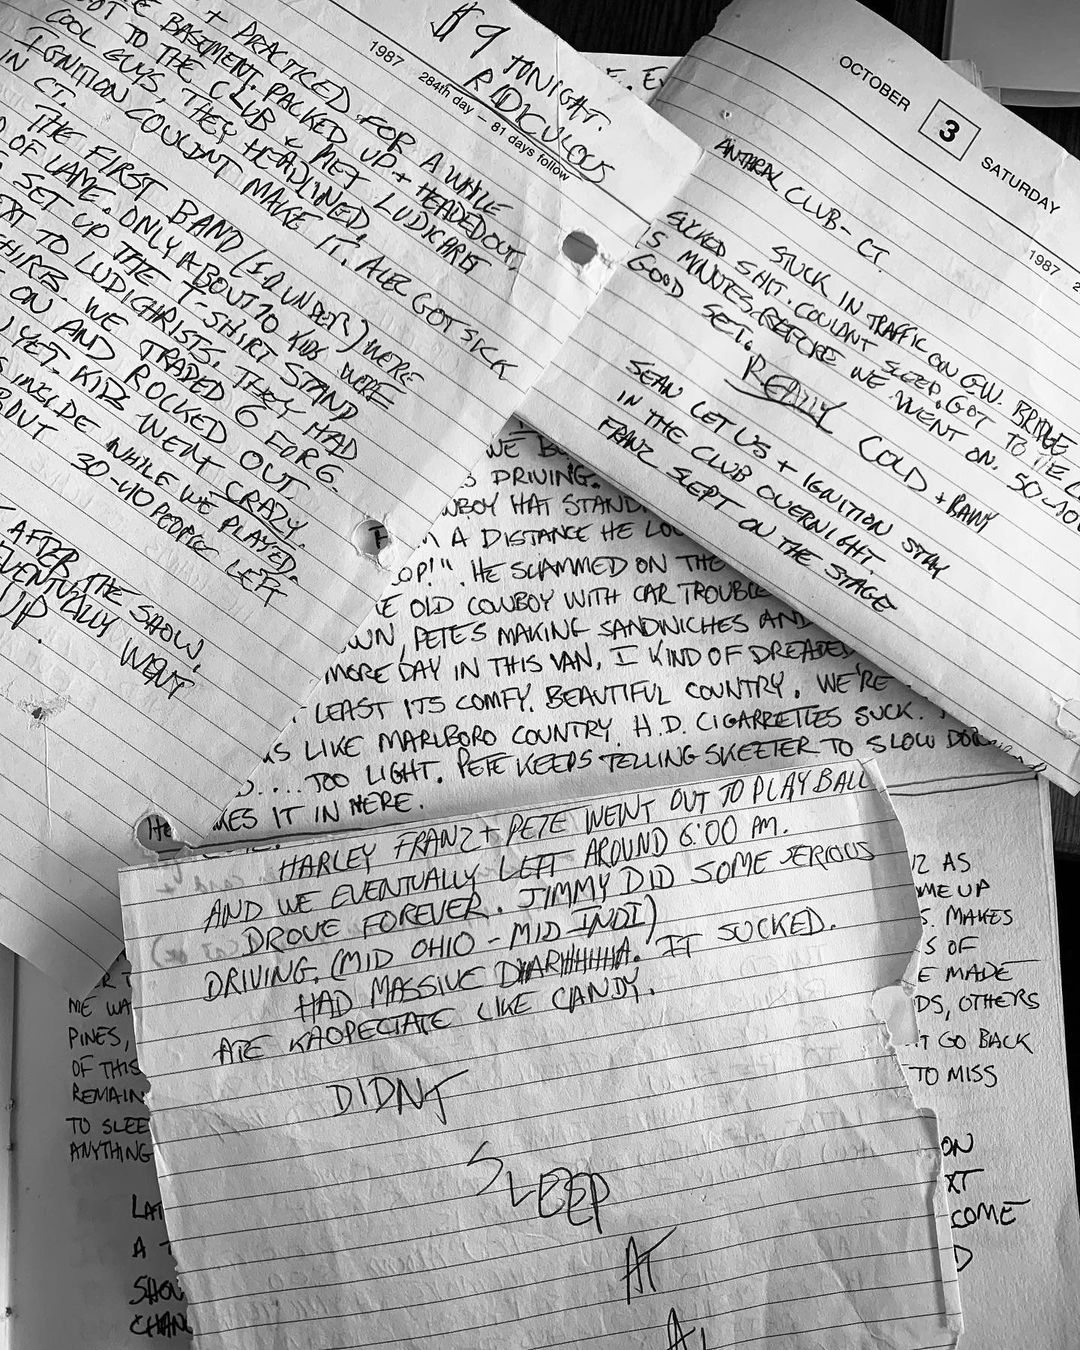 $9 TONIGHT.
RIDICULOUS
1987 284th day – 81 days follow
BASEMENT. PACKED UP + HEADED OUT,
+ PRACTICED FOR A WHILE
TO THE CLUB & MET LUDICHRIST
COOL GUYS, THEY HEADLINED.
IGNITION COULDNT MAKE IT. ALEC GOT SICK
IN CT.
THE FIRST BAND (SOUNDER) WERE
OF LAME. ONLY ABOUT 70 KIDS WERE
SET UP THE T-SHIRT STAND
TO LUDICHRISTS. THEY HAD
WE TRADED 6 FOR 6.
ON AND ROCKED OUT.
YET. KIDS WENT CRAZY.
INSIDE WHILE WE PLAYED.
30-40 PEOPLE LEFT
AFTER THE SHOW,
EVENTUALLY WENT
UP.
OCTOBER 3 SATURDAY
1987
ANTHRAX CLUB - CT.
STUCK IN TRAFFIC ON G.W. BRIDGE
SUCKED SHIT. COULDNT SLEEP. GOT TO THE
5 MINUTES BEFORE WE WENT ON. 50-
GOOD SET.
REALLY COLD + RAINY
SEAN LET US + IGNITION STAY
IN THE CLUB OVERNIGHT.
FRANZ SLEPT ON THE STAGE
WE
DRIVING.
HAT
A DISTANCE HE
". HE SLAMMED ON THE
OLD COWBOY WITH CAR TROUBLE
PETES MAKING SANDWICHES AND
MORE DAY IN THIS VAN. I KIND OF DREADED
LEAST ITS COMFY. BEAUTIFUL COUNTRY. WE'RE
LIKE MARLBORO COUNTRY. H.D. CIGARRETTES SUCK.
.... TOO LIGHT. PETE KEEPS TELLING SKEETER TO SLOW DOWN
IT IN HERE.
HARLEY FRANZ + PETE WENT OUT TO PLAY BALL
AND WE EVENTUALLY LEFT AROUND 6:00 PM.
DROVE FOREVER. JIMMY DID SOME SERIOUS
DRIVING. (MID OHIO - MID INDI)
HAD MASSIVE DYARHHHHHA. IT SUCKED.
ATE KAOPECTATE LIKE CANDY.
DIDNT
SLEEP
AT
AS
ME UP
MAKES
OF
MADE
OTHERS
GO BACK
TO MISS
ON
COME
ME
PINES,
OF THIS
REMAIN
TO
ANYTHING
A